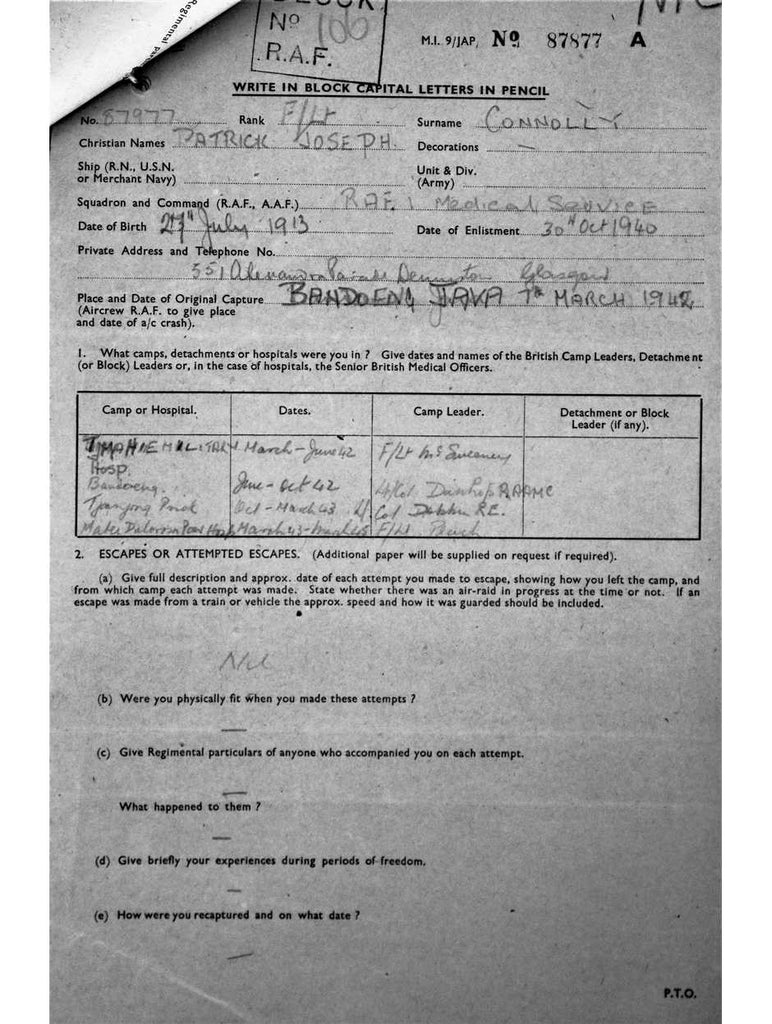 Regimental
BLOCK
Nº 106
R.A.F.
M.I. 9/JAP, Nº 87877 A
WRITE IN BLOCK CAPITAL LETTERS IN PENCIL
No. 87977 Rank F/Lt Surname CONNOLLY
Christian Names PATRICK JOSEPH. Decorations —
Ship (R.N., U.S.N. or Merchant Navy) Unit & Div. (Army)
Squadron and Command (R.A.F., A.A.F.) RAF. Medical SERVICE
Date of Birth 27th July 1913 Date of Enlistment 30th Oct 1940
Private Address and Telephone No.
551 Alexandra Parade Dennistoun Glasgow
Place and Date of Original Capture BANDOENG JAVA 7th MARCH 1942
(Aircrew R.A.F. to give place
and date of a/c crash).
1. What camps, detachments or hospitals were you in ? Give dates and names of the British Camp Leaders, Detachment
(or Block) Leaders or, in the case of hospitals, the Senior British Medical Officers.
Camp or Hospital. Dates. Camp Leader. Detachment or Block
Leader (if any).
TJMAHIE MILITARY March - June 42 F/Lt McSweeney
Hosp.
Bandoeng June - Oct 42 Lt/Col Dunlop RAAMC
Tjanjong Priok Oct - March 43 Lt. Col RE.
Mater Dolorosa Hosp March 43 - F/Lt
2. ESCAPES OR ATTEMPTED ESCAPES. (Additional paper will be supplied on request if required).
(a) Give full description and approx. date of each attempt you made to escape, showing how you left the camp, and
from which camp each attempt was made. State whether there was an air-raid in progress at the time or not. If an
escape was made from a train or vehicle the approx. speed and how it was guarded should be included.
Nil
(b) Were you physically fit when you made these attempts ?
—
(c) Give Regimental particulars of anyone who accompanied you on each attempt.
—
What happened to them ?
—
(d) Give briefly your experiences during periods of freedom.
—
(e) How were you recaptured and on what date ?
—
P.T.O.